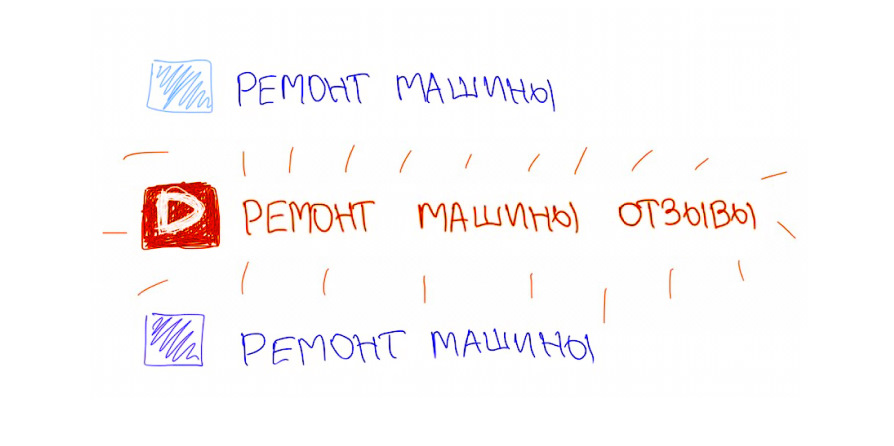 РЕМОНТ МАШИНЫ
D РЕМОНТ МАШИНЫ ОТЗЫВЫ
РЕМОНТ МАШИНЫ